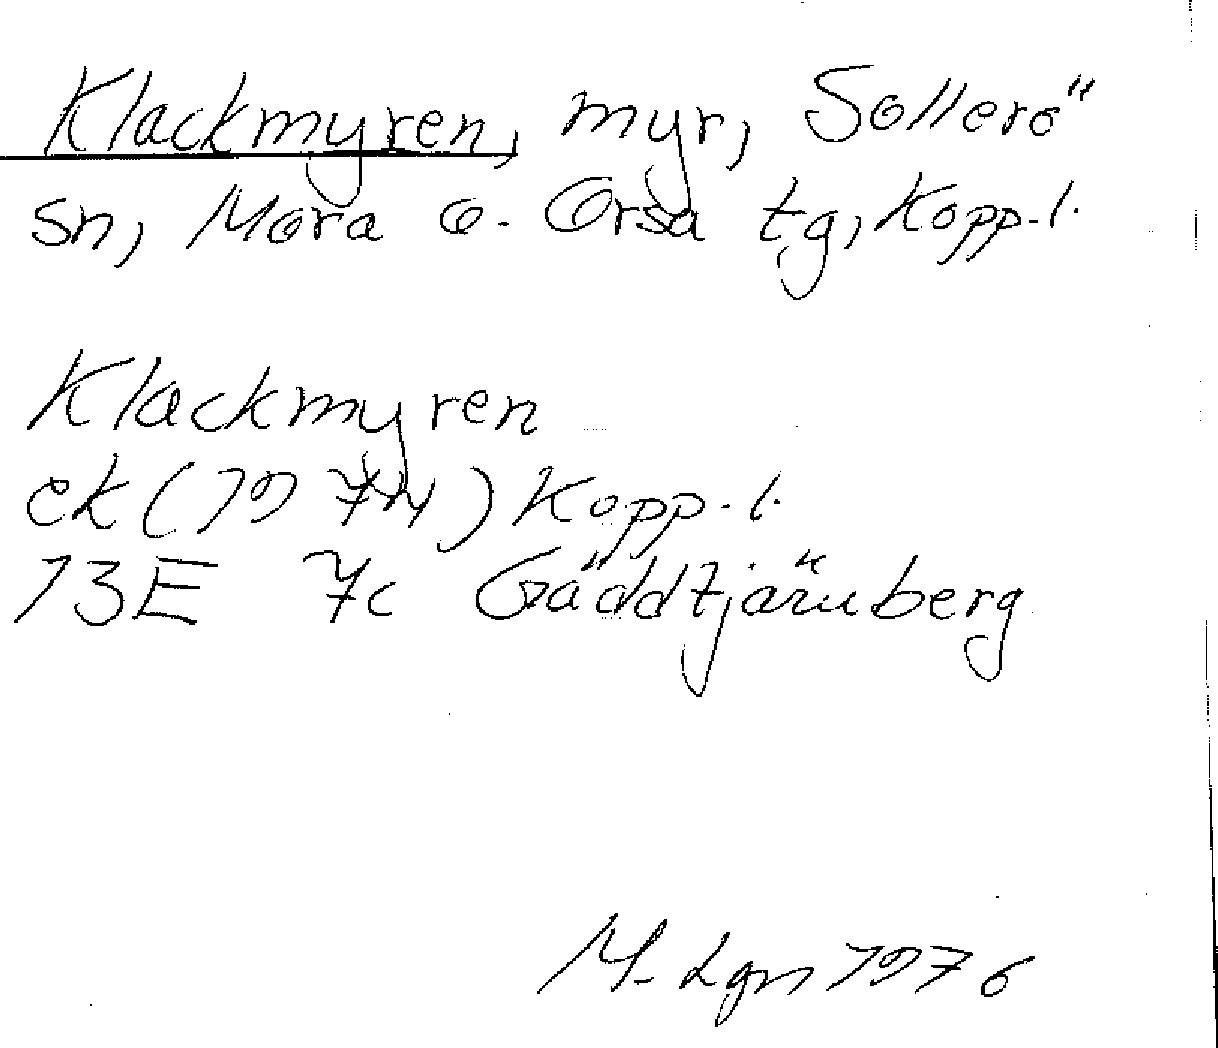 Klackmyren, myr, Sollerö
sn, Mora o. Orsa tg, Kopp. l.
Klackmyren
ek (1974) Kopp. l.
13E 7c Gäddtjärnberg
M. Lgn 1976